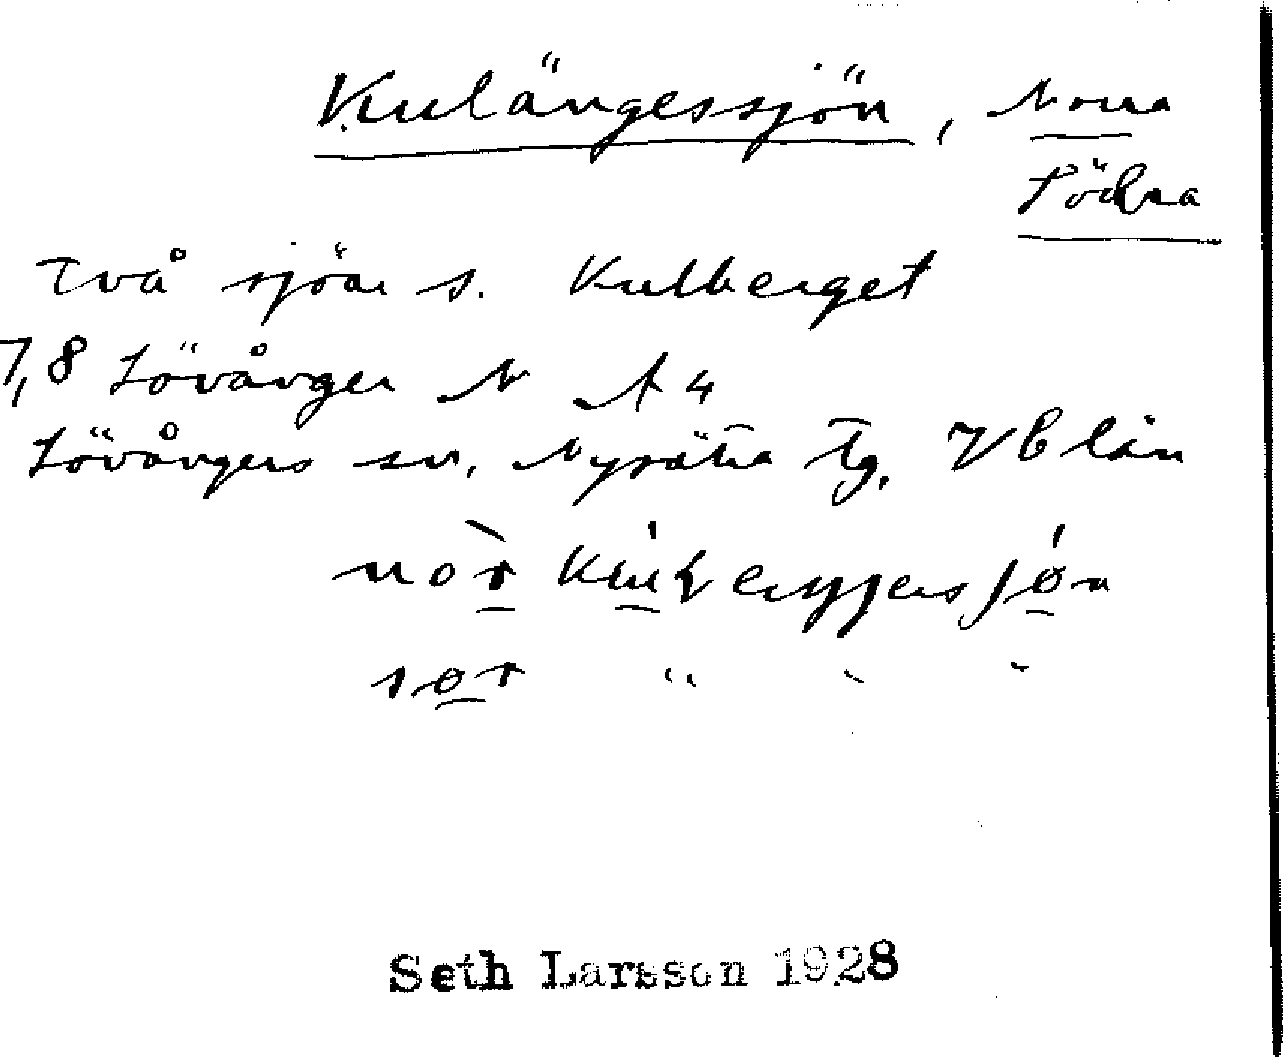 Kulängessjön, Norra
Södra
Två sjöar s. Kulberget
7,8 Lövånger N A 4
Lövångers sn, Nysätra tg. Vb län
nor
sør " " "
Seth Larsson 1928